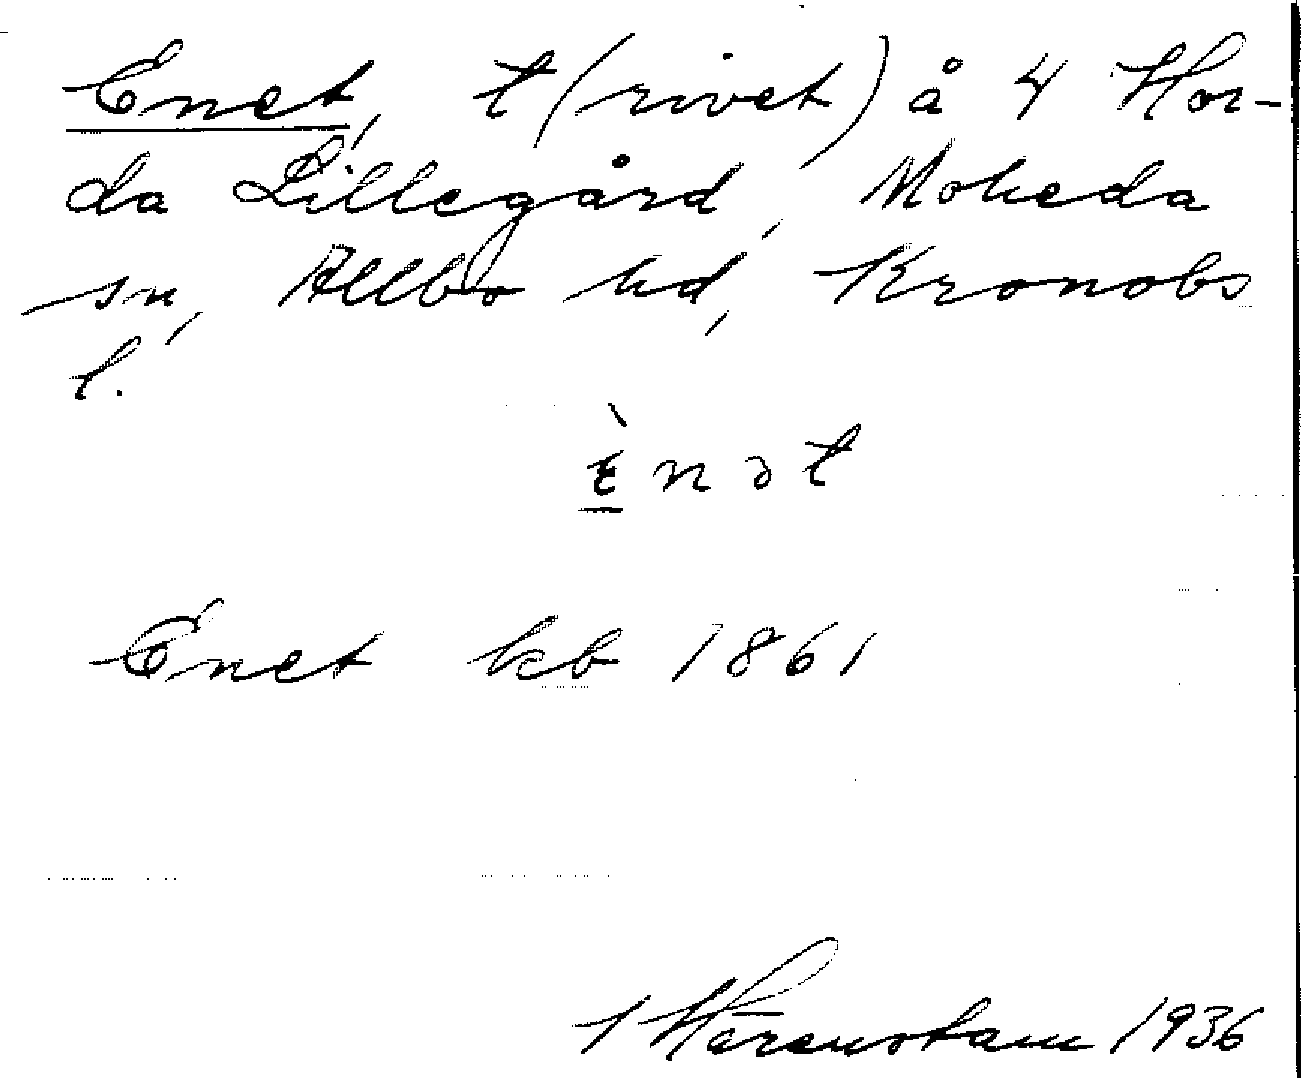 Enet, t (rivet) å 4 Hor-
da Lillegård, Moheda
sn, Allbo hd, Kronobs
l.
ὲnət
Énet kb 1861
1936